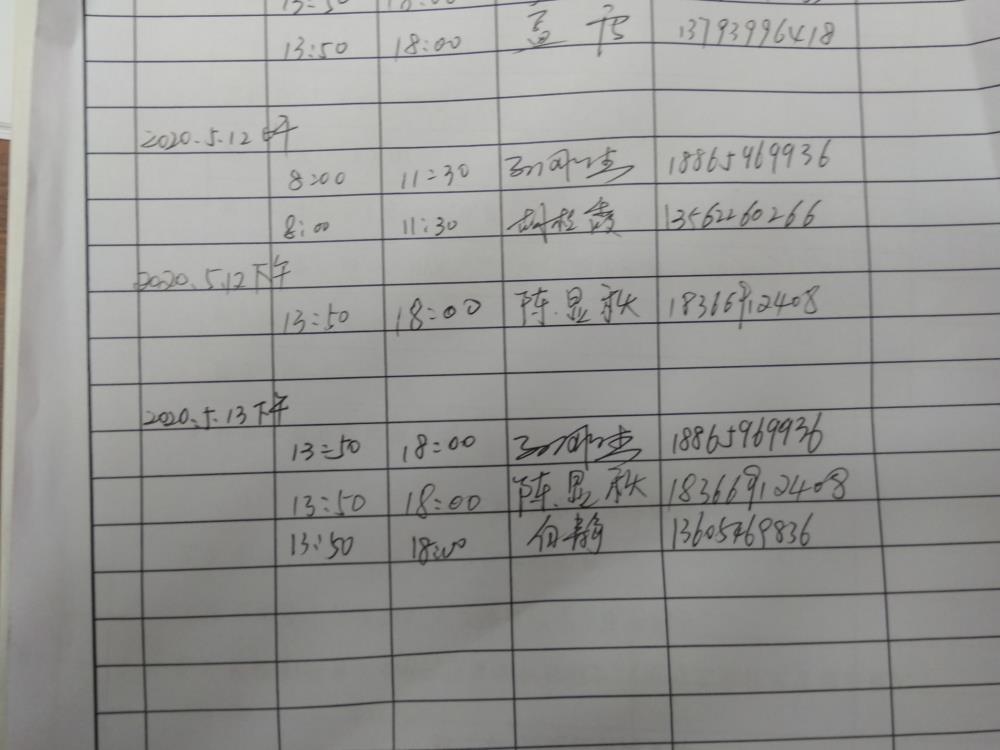 13:50 18:00
13:50 18:00 13793996418
2020.5.12 上午
8:00 11:30 18865969936
8:00 11:30 13562260266
2020.5.12下午
13:50 18:00 陈显秋 18366912408
2020.5.13下午
13:50 18:00 18865969936
13:50 18:00 陈显秋 18366912408
13:50 18:00 何静 13605469836